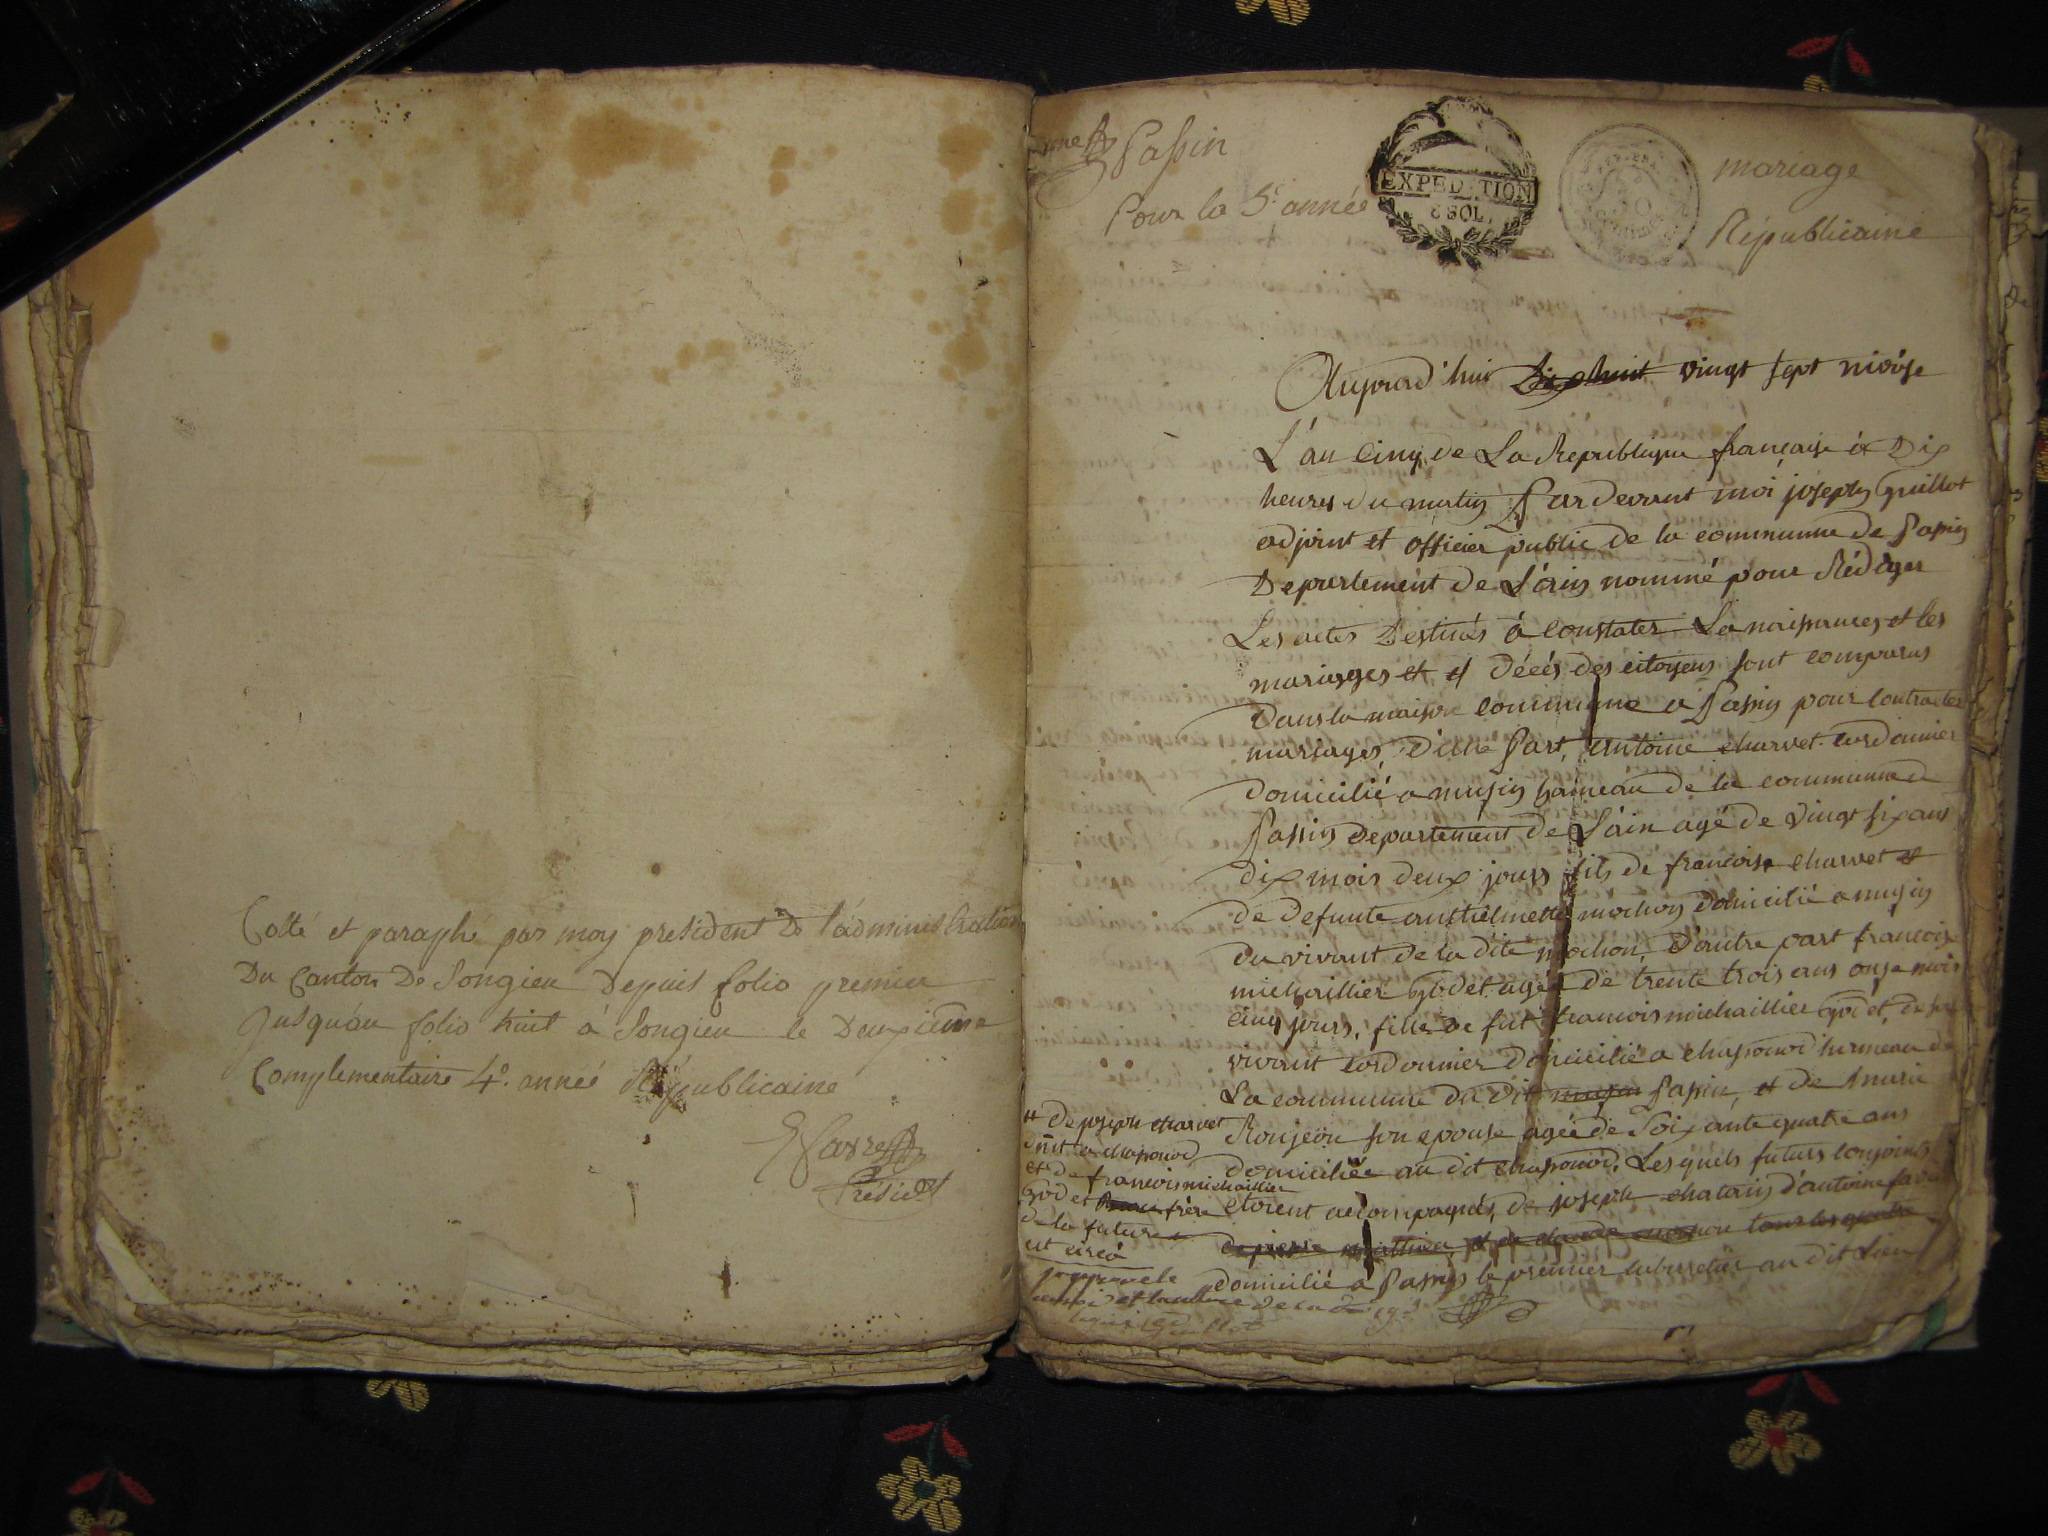 Cotté et paraphé par moy president De l'administration
Du Canton De Songieu Depuis folio premier
Jusquau folio huit à Songieu le Deuxieme
Complementaire 4e. année Républicaine
Présidt
Passin
mariage
Pour la 5e. année
Républicaine
EXPEDITION
8 SOL
Aujourd'hui Dix huit vingt sept nivôse
L'an Cinq de La Republique française à Dix
heures du matin Pardevant moi joseph Guillot
adjoint et officier public de la commune de Passin
Departement de L'ain nommé pour Rédiger
Les actes Destinés à constater La naissances et les
mariages et décés des citoyens sont comparus
Dans la maison commune a Passin pour contracter
mariages, D'une Part, antoine charvet cordonnier
domicilié a musin hameau de la commune de
Passin departement de L'ain agé de vingt six ans
dix mois deux jours fils de françoise charvet et
de defunte mochon domicilié a musin
du vivant de la dite mochon, D'autre part françoise
michaillier godet agée de trente trois ans onze mois
cinq jours, fille de fut francois michaillier godet, de son
vivant cordonnier domicilié a chassonod hameau de
La commune du dit musin Passin, et de
Ronjeon son epouse agée de Soixante quatre ans
domiciliée au dit chassonod. Les quels futurs conjoints
etoient accompagnés, de joseph chatain d'antoine
de pierre et de claude tous les quatre
domicilié a Passin le premier au dit Lieu
# De joseph charvet
a chassonod
et de francois michaillier
godet frère
de la future